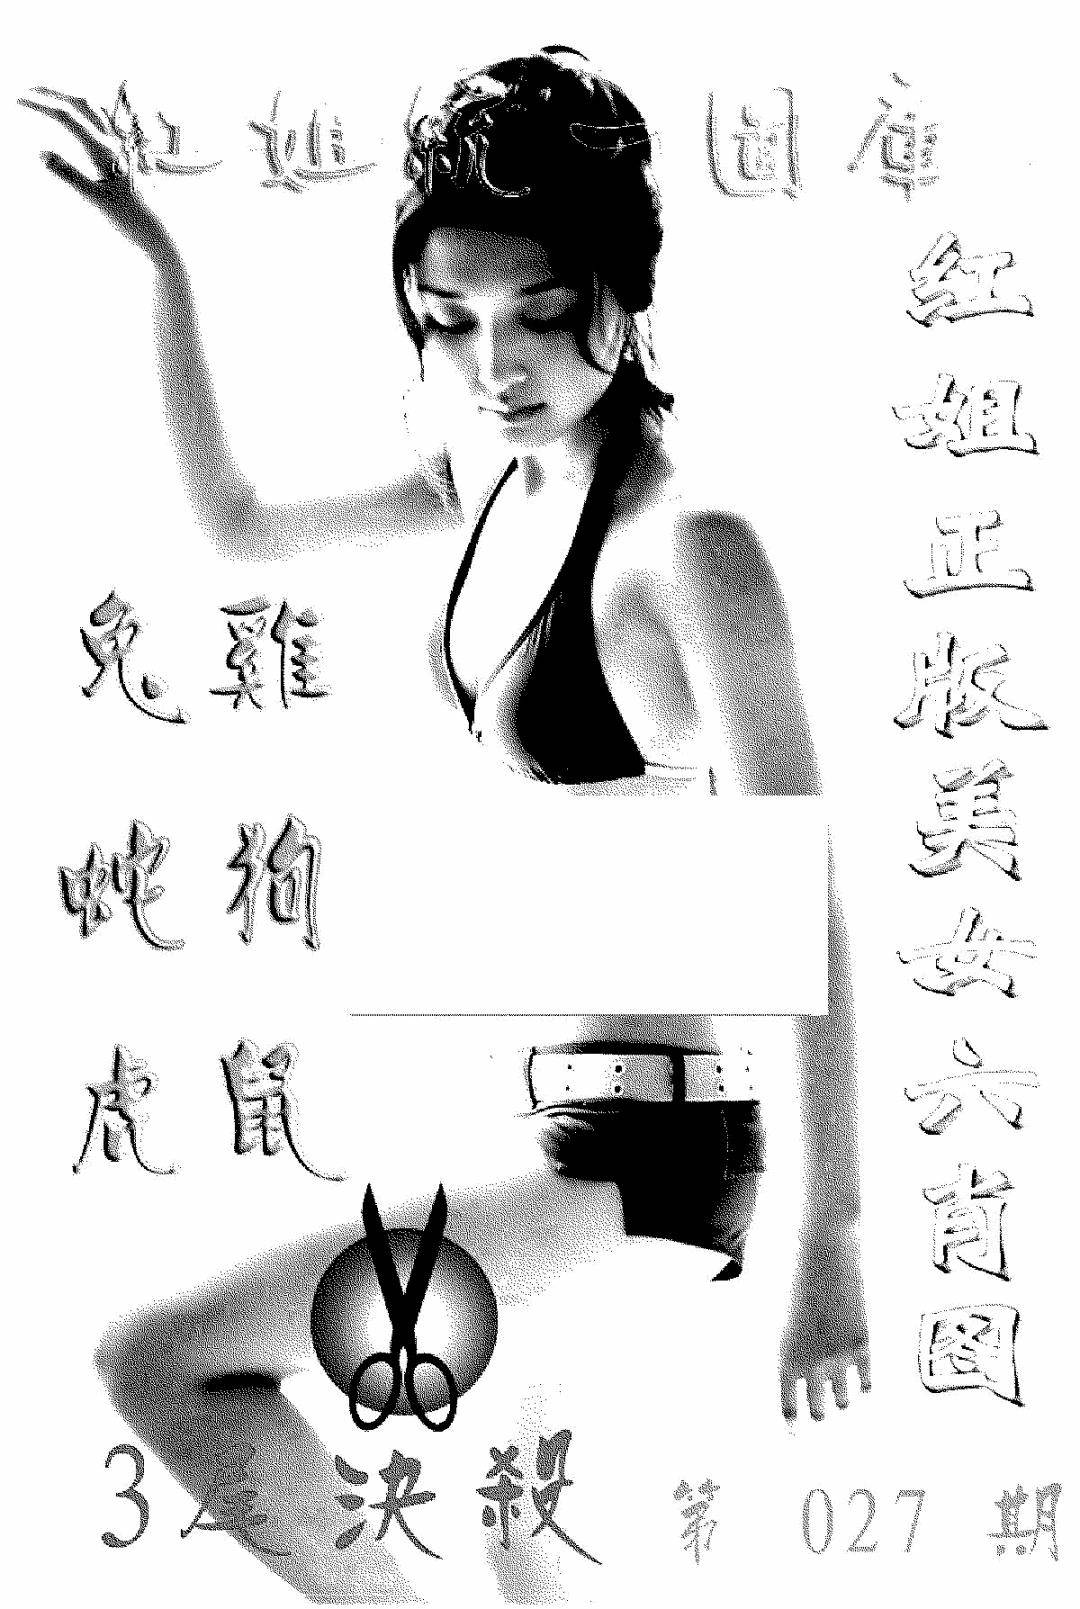 紅姐統一圖庫
紅姐正版美女六肖圖
兔 雞
蛇 狗
虎 鼠
3尾決殺
第 027 期